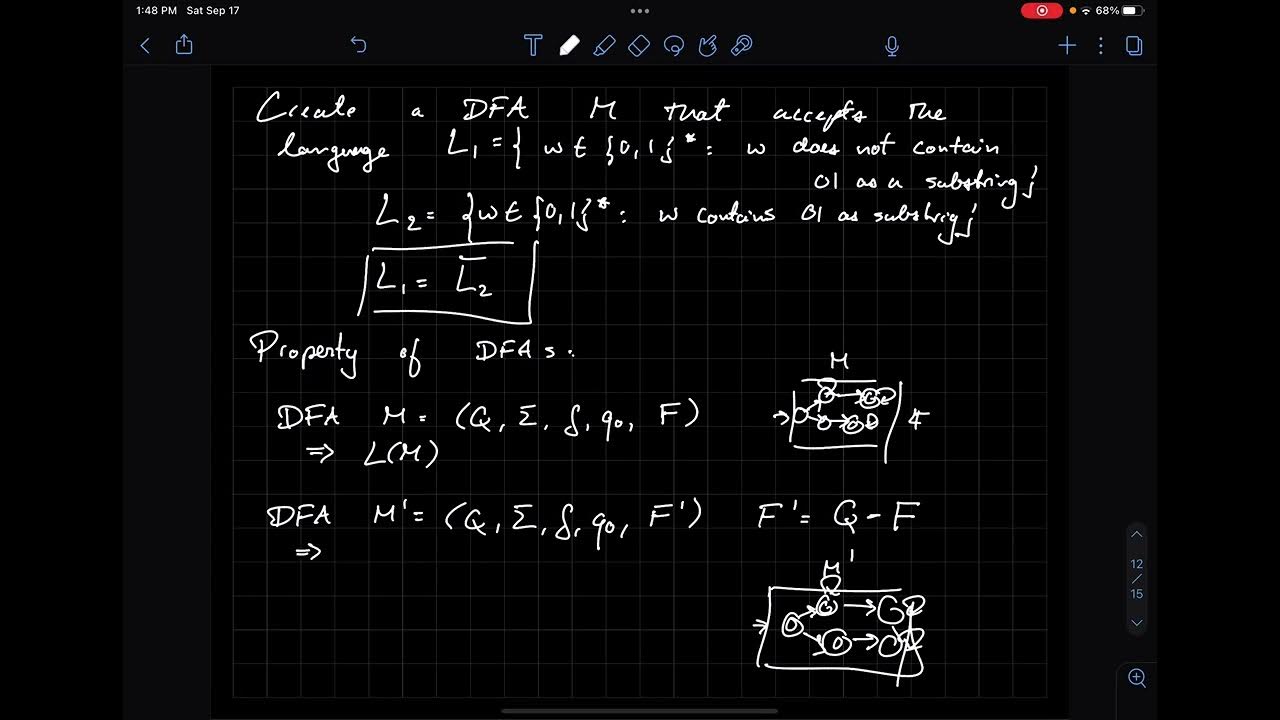 1:48 PM Sat Sep 17
68%
Create a DFA M that accepts the
language L₁ = { w ∈ {0,1}* : w does not contain
01 as a substring}
L₂ = {w ∈ {0,1}* : w contains 01 as substrig}
L₁ = L̅₂
Property of DFAs:
M
DFA M = (Q, Σ, δ, q₀, F)
⇒ L(M)
DFA M' = (Q, Σ, δ, q₀, F') F' = Q - F
⇒
M'
12
/
15